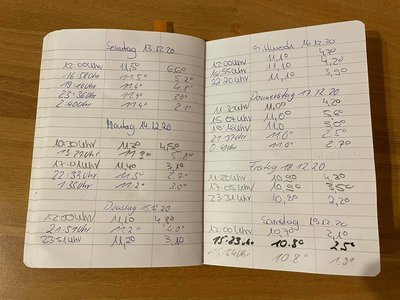 Sonntag 13.12.20
12:00Uhr 11,5° 6,0°
16:58Uhr 11.5° 5.2°
19:10Uhr 11.4° 4.8°
23:36Uhr 11.4° 3.0°
2:40Uhr 11.4° 2.1°
Montag 14.12.20
10:30Uhr 11,5° 4,5°
13:22Uhr 11,9° 5,8°
17:01Uhr 11,4° 3,1°
22:33Uhr 11.3° 2.2°
1:35Uhr 11.2° 3.0°
Dienstag 15.12.20
12:00Uhr 11,1° 4,8°
21:51Uhr 11,2° 4,0°
23:51Uhr 11,2° 3,1°
Mittwoch 16.12.20
12:00Uhr 11,1° 4,2°
16:55Uhr 11,1° 4,2°
22:20Uhr 11,1° 3,9°
Donnerstag 17.12.20
11:30Uhr 11,0° 4,2°
15:07Uhr 11,0° 5,6°
19:16Uhr 11,0 3,0°
21:37Uhr 11.0° 2.5°
11.0° 2.7°
Freitag 18.12.20
12:00Uhr 10,9° 4,3°
17:05Uhr 10,9° 3,5°
23:31Uhr 10,8° 2,2°
Samstag 19.12.20
12:00Uhr 10,7° 2,1°
15:23 10.8° 2.5°
16:54Uhr 10.8° 1.9°